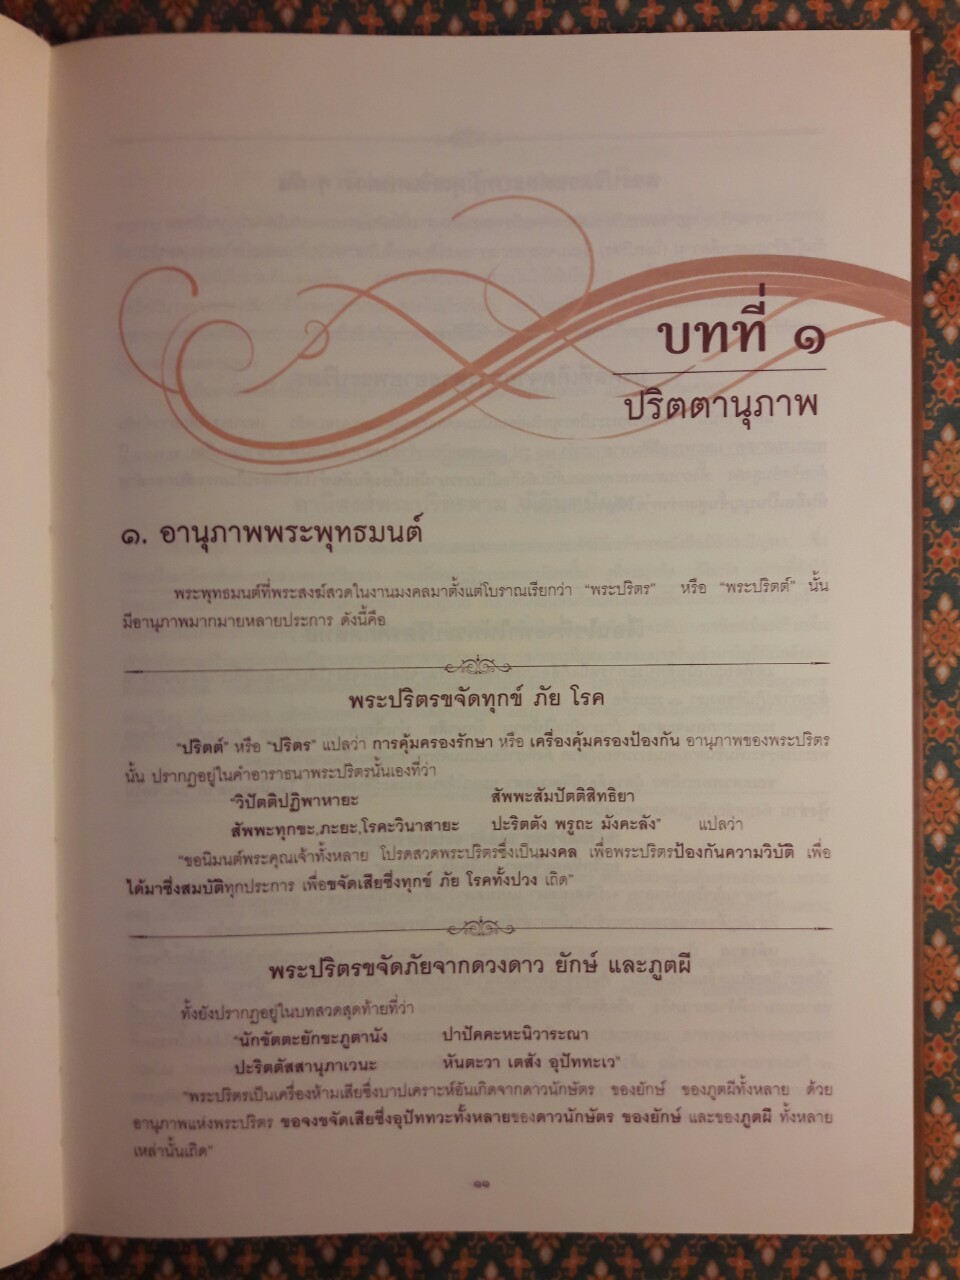 บทที่ ๑
ปริตตานุภาพ
๑. อานุภาพพระพุทธมนต์
พระพุทธมนต์ที่พระสงฆ์สวดในงานมงคลมาตั้งแต่โบราณเรียกว่า “พระปริตร” หรือ “พระปริตต์” นั้น
มีอานุภาพมากมายหลายประการ ดังนี้คือ
พระปริตรขจัดทุกข์ ภัย โรค
“ปริตต์” หรือ “ปริตร” แปลว่า การคุ้มครองรักษา หรือ เครื่องคุ้มครองป้องกัน อานุภาพของพระปริตร
นั้น ปรากฏอยู่ในคำอาราธนาพระปริตรนั้นเองที่ว่า
“วิปัตติปฏิพาหายะ สัพพะสัมปัตติสิทธิยา
สัพพะทุกขะ,ภะยะ,โรคะวินาสายะ ปะริตตัง พรูถะ มังคะลัง” แปลว่า
“ขอนิมนต์พระคุณเจ้าทั้งหลาย โปรดสวดพระปริตรซึ่งเป็นมงคล เพื่อพระปริตรป้องกันความวิบัติ เพื่อ
ได้มาซึ่งสมบัติทุกประการ เพื่อขจัดเสียซึ่งทุกข์ ภัย โรคทั้งปวง เถิด”
พระปริตรขจัดภัยจากดวงดาว ยักษ์ และภูตผี
ทั้งยังปรากฏอยู่ในบทสวดสุดท้ายที่ว่า
“นักขัตตะยักขะภูตานัง ปาปัคคะหะนิวาระณา
ปะริตตัสสานุภาเวนะ หันตะวา เตสัง อุปัททะเว”
“พระปริตรเป็นเครื่องห้ามเสียซึ่งบาปเคราะห์อันเกิดจากดาวนักษัตร ของยักษ์ ของภูตผีทั้งหลาย ด้วย
อานุภาพแห่งพระปริตร ขอจงขจัดเสียซึ่งอุปัททวะทั้งหลายของดาวนักษัตร ของยักษ์ และของภูตผี ทั้งหลาย
เหล่านั้นเถิด”
๑๑